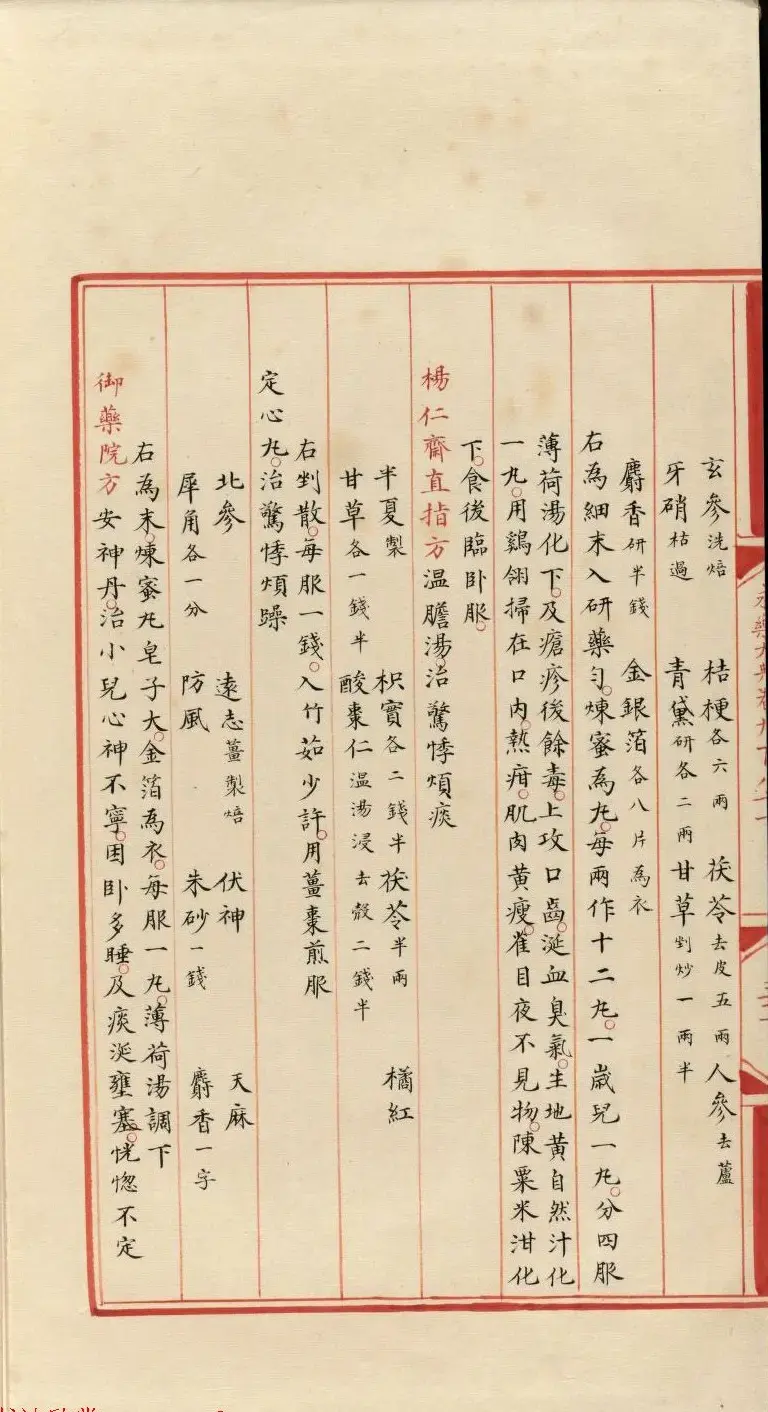 玄參洗焙 桔梗各六兩 茯苓去皮五兩 人參去蘆
牙硝枯過 青黛研各二兩 甘草剉炒一兩半
麝香研半錢 金銀箔各八片為衣
右為細末入研藥勻。煉蜜為丸。每兩作十二丸。一歲兒一丸。分四服
薄荷湯化下。及瘡疹後餘毒。上攻口齒。涎血臭氣。生地黃自然汁化
一丸。用鷄翎掃在口內。熱疳。肌肉黃瘦。雀目夜不見物。陳粟米泔化
下。食後臨卧服。
楊仁齋直指方温膽湯。治驚悸煩痰
半夏製 枳實各二錢半 茯苓半兩 橘紅
甘草各一錢半 酸棗仁温湯浸去殼二錢半
右剉散。每服一錢。入竹茹少許。用薑棗煎服
定心丸。治驚悸煩躁
北參 遠志薑製焙 伏神 天麻
犀角各一分 防風 朱砂一錢 麝香一字
右為末。煉蜜丸皂子大。金箔為衣。每服一丸。薄荷湯調下
御藥院方安神丹。治小兒心神不寧。困卧多睡。及痰涎壅塞。恍惚不定